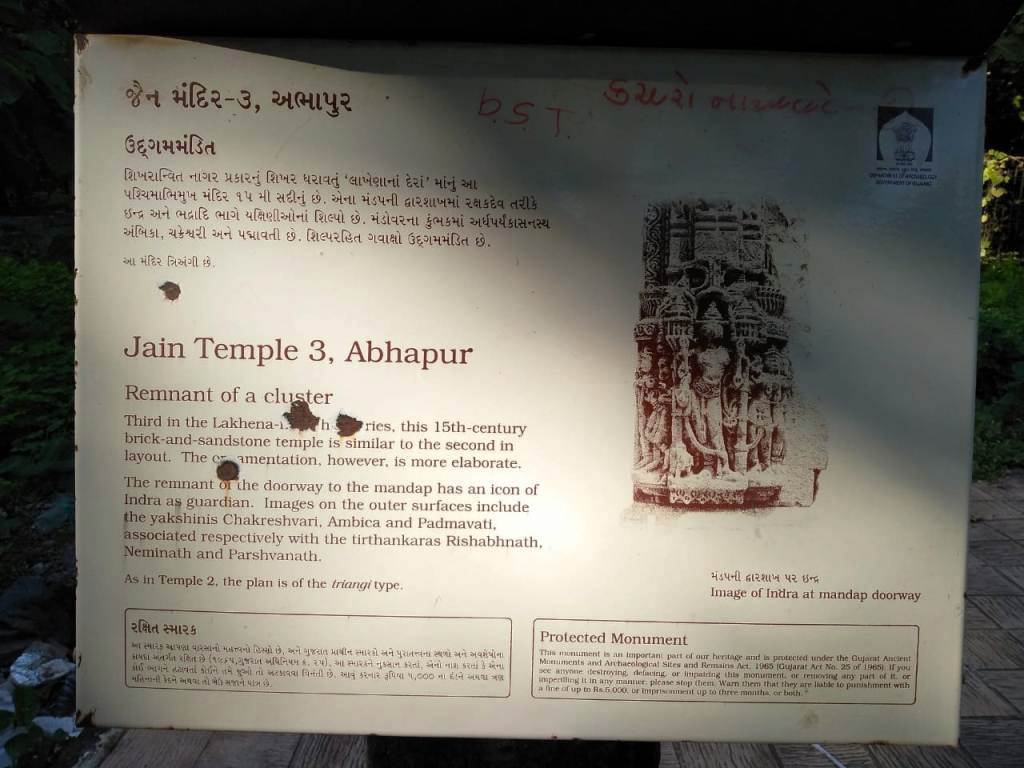 જૈન મંદિર-૩, અભાપુર
ઉદ્ગમમંડિત
શિખરાન્વિત નાગર પ્રકારનું શિખર ધરાવતું ‘લાખેણાનાં દેરાં’ માંનું આ
પશ્ચિમાભિમુખ મંદિર ૧૫ મી સદીનું છે. એના મંડપની દ્વારશાખમાં રક્ષકદેવ તરીકે
ઇન્દ્ર અને ભદ્રાદિ ભાગે યક્ષિણીઓનાં શિલ્પો છે. મંડોવરના કુંભકમાં અર્ધપર્યંકાસનસ્થ
અંબિકા, ચક્રેશ્વરી અને પદ્માવતી છે. શિલ્પરહિત ગવાક્ષો ઉદ્ગમમંડિત છે.
આ મંદિર ત્રિઅંગી છે.
b.S.T.
કચરો
Jain Temple 3, Abhapur
Remnant of a cluster
Third in the this 15th-century
brick-and-sandstone temple is similar to the second in
layout. The however, is more elaborate.
The remnant of the doorway to the mandap has an icon of
Indra as guardian. Images on the outer surfaces include
the yakshinis Chakreshvari, Ambica and Padmavati,
associated respectively with the tirthankaras Rishabhnath,
Neminath and Parshvanath.
As in Temple 2, the plan is of the triangi type.
મંડપની દ્વારશાખ પર ઇન્દ્ર
Image of Indra at mandap doorway
રક્ષિત સ્મારક
આ સ્મારક આપણા વારસાનો મહત્ત્વનો હિસ્સો છે, અને ગુજરાત પ્રાચીન સ્મારકો અને પુરાતત્ત્વના સ્થળો અને અવશેષોના
કાયદા અંતર્ગત રક્ષિત છે (૧૯૬૫,ગુજરાત અધિનિયમ ક્ર. ૨૫). આ સ્મારકને નુકસાન કરતાં, એનો નાશ કરતાં કે એના
કોઈ ભાગને હટાવતાં કોઈને તમે જુઓ તો અટકાવવા વિનંતી છે. આવું કરનાર રૂપિયા ૫,૦૦૦ ના દંડને અથવા ત્રણ
મહિનાની કેદને અથવા તો બેઉ સજાને પાત્ર છે.
Protected Monument
This monument is an important part of our heritage and is protected under the Gujarat Ancient
Monuments and Archaeological Sites and Remains Act, 1965 (Gujarat Act No. 25 of 1965). If you
see anyone destroying, defacing, or impairing this monument, or removing any part of it, or
imperilling it in any manner, please stop them. Warn them that they are liable to punishment with
a fine of up to Rs.5,000, or imprisonment up to three months, or both.
DEPARTMENT OF ARCHAEOLOGY
GOVERNMENT OF GUJARAT